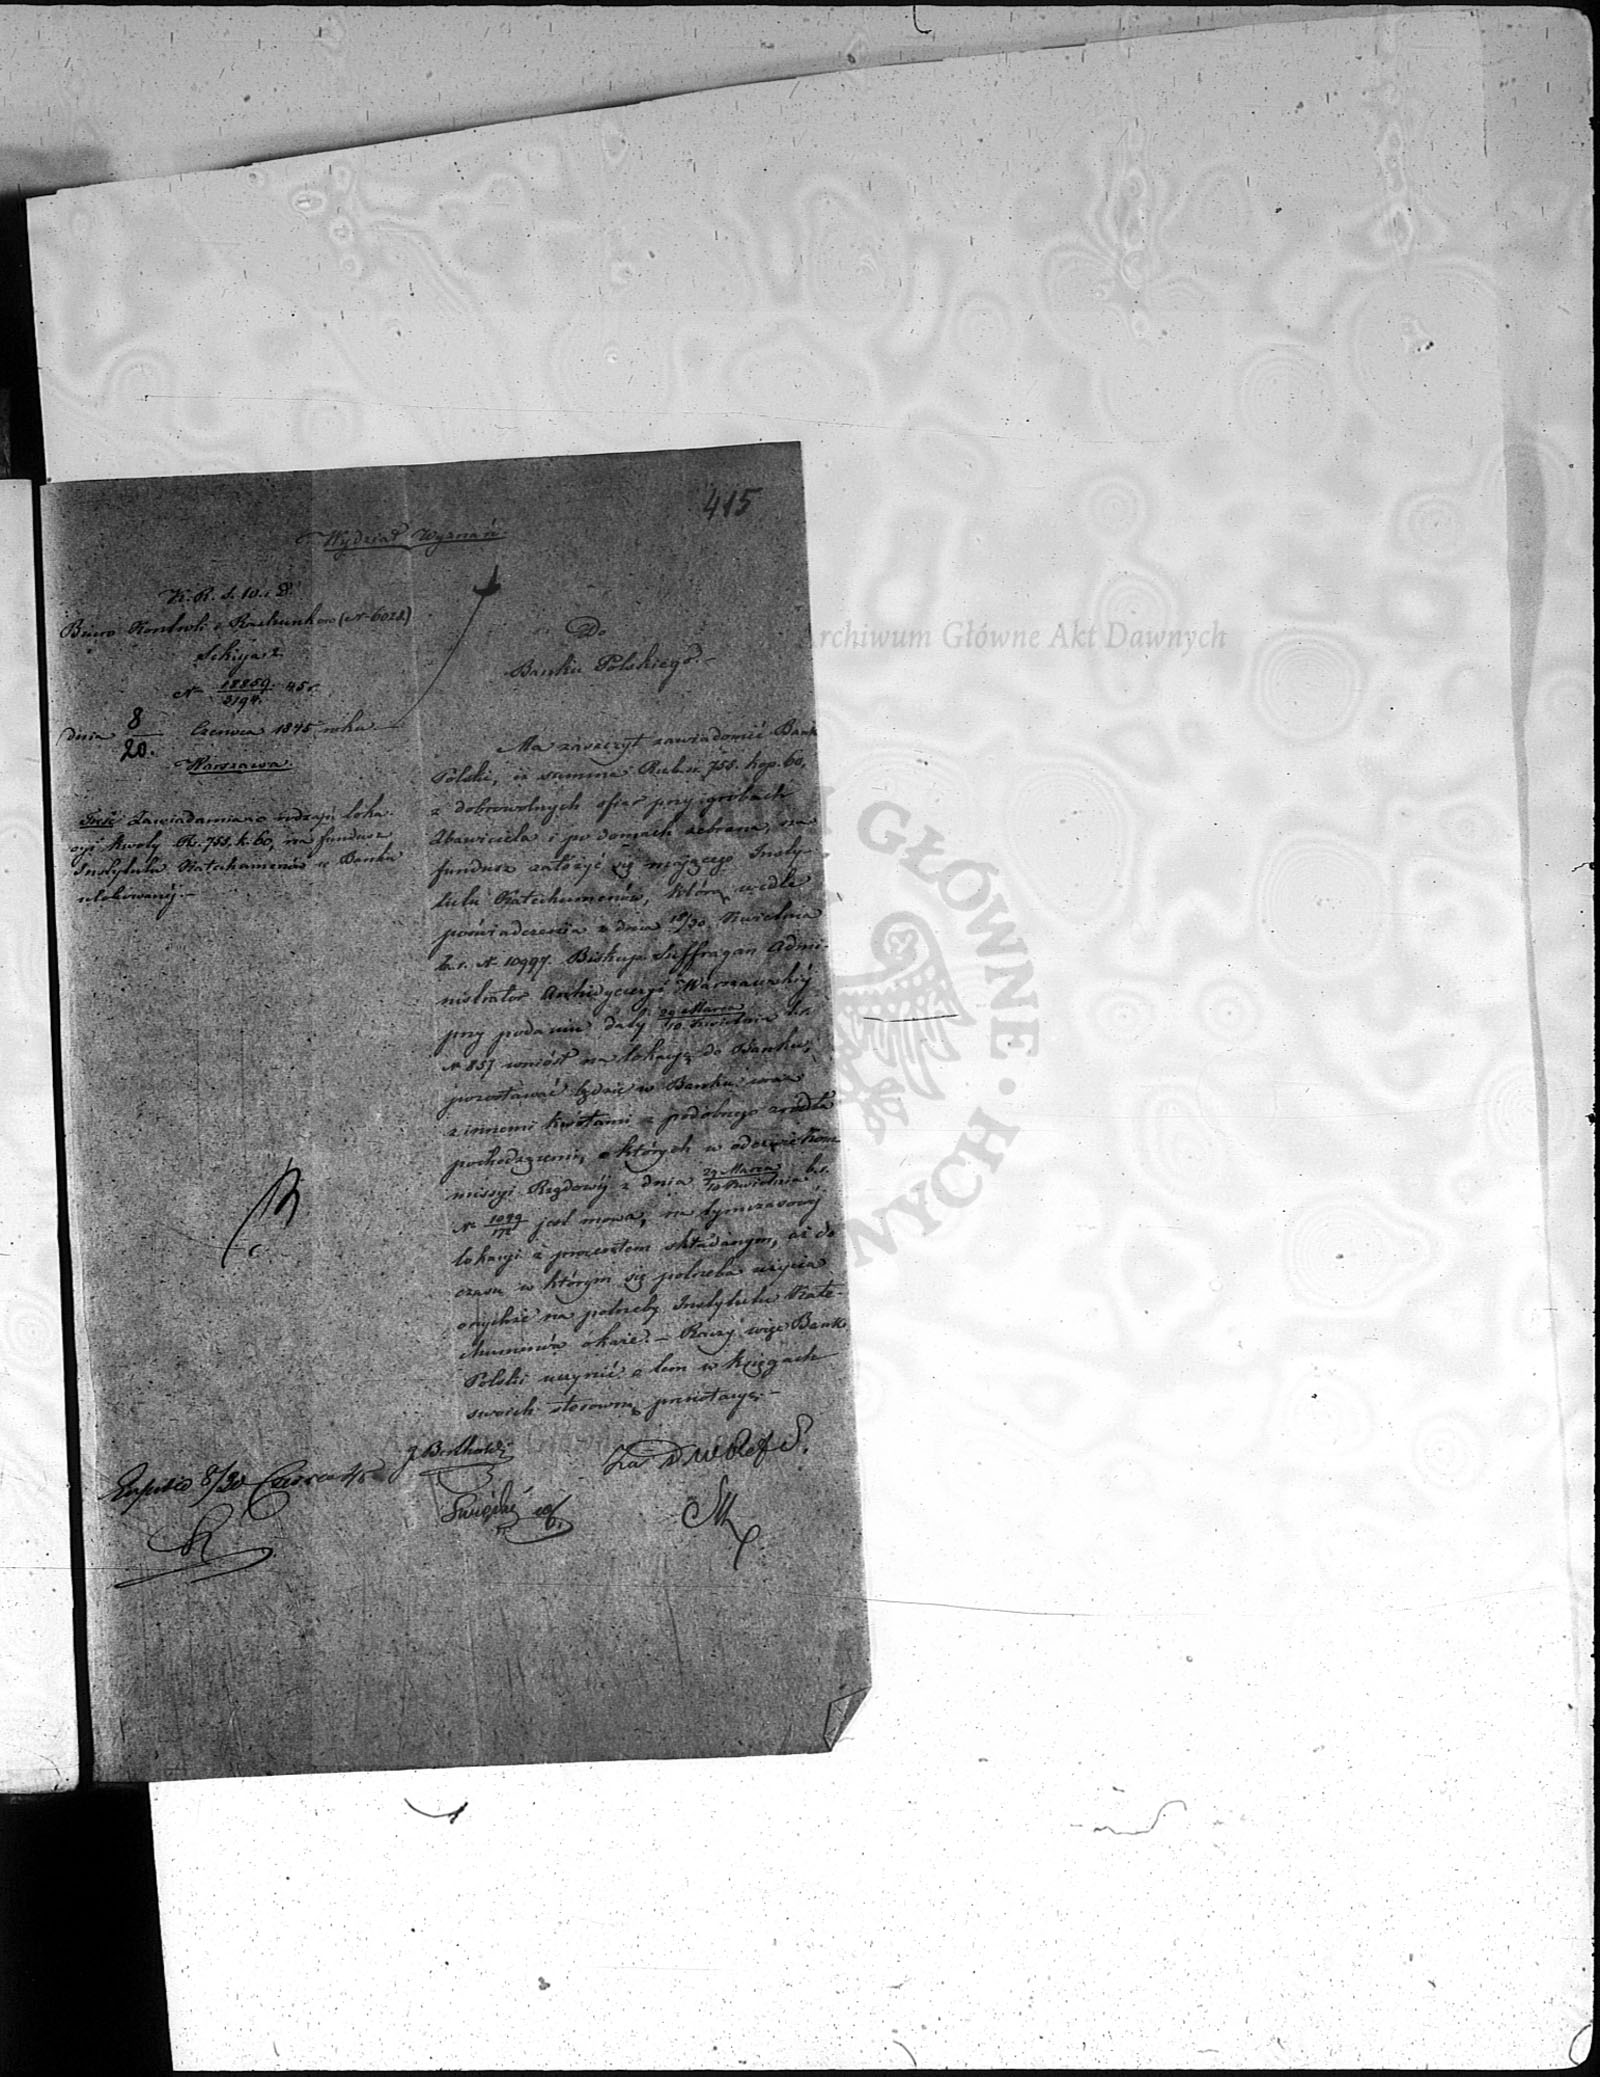 415
Wydział Wyznań
K. R. S. W. i D.
Biuro Kontroli i Rachunków (N 6028.)
Sekcya 2
N 18859/2194. 45 r.
dnia 8/20. Czerwca 1845 roku
Warszawa.
Treść Zawiadamia o rodzaju loka-
cyi kwoty Rs. 755. k. 60, na fundusz
Instytutu Katechumenów w Banku
ulokowanéj.
Do
Banku Polskiego.
Ma zaszczyt zawiadomić Bank
Polski, iż summa Rub. sr. 755. kop. 60,
z dobrowolnych ofiar przy grobach
Zbawiciela i po domach zebrana, na
fundusz założyć się mającego Insty-
tutu Katechumenów, którą wedle
poświadczenia z dnia 18/30 Kwietnia
b. r. N 10997. Biskup Suffragan Admi-
nistrator Archidyecezyi Warszawskiéj
przy podaniu daty 29 Marca/10 Kwietnia b. r.
N 857 wniósł na lokacyę do Banku,
pozostawać będzie w Banku wraz
z innemi kwotami z podobnego źródła
pochodzącemi, o których w odezwie Kom-
missyi Rządowéj z dnia 29 Marca/10 Kwietnia b. r.
N 1099/172 jest mowa, na tymczasowéj
lokacyi z procentem składanym, aż do
czasu w którym się potrzeba użycia
onychże na potrzeby Instytutu Kate-
chumenów okaże. – Raczy więc Bank
Polski uczynić o tem w księgach
swoich stosowną prenotacyę. –
8/20 Czerwca 45
Za
Archiwum Główne Akt Dawnych
GŁÓWNE